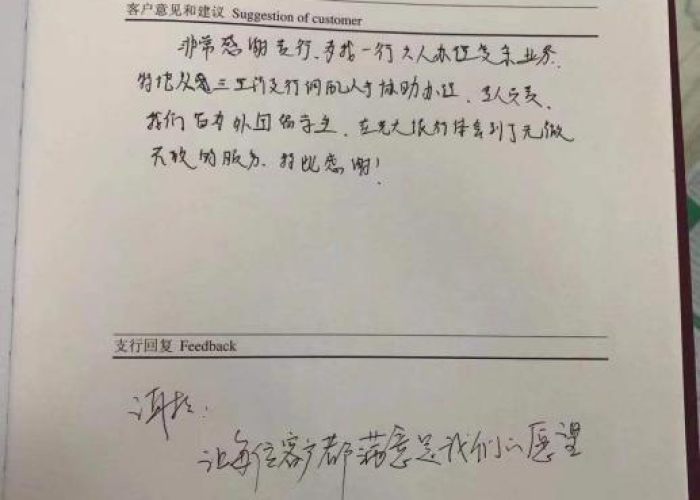 客户意见和建议 Suggestion of customer
非常感谢支行,为我一行六人办理复杂业务.
特地从三工街支行调配人手协助办理、令人感动.
我们留有外国留学生、在光大银行体会到了无微
不致的服务、特此感谢!
支行回复 Feedback
让每位客户都满意是我们的愿望